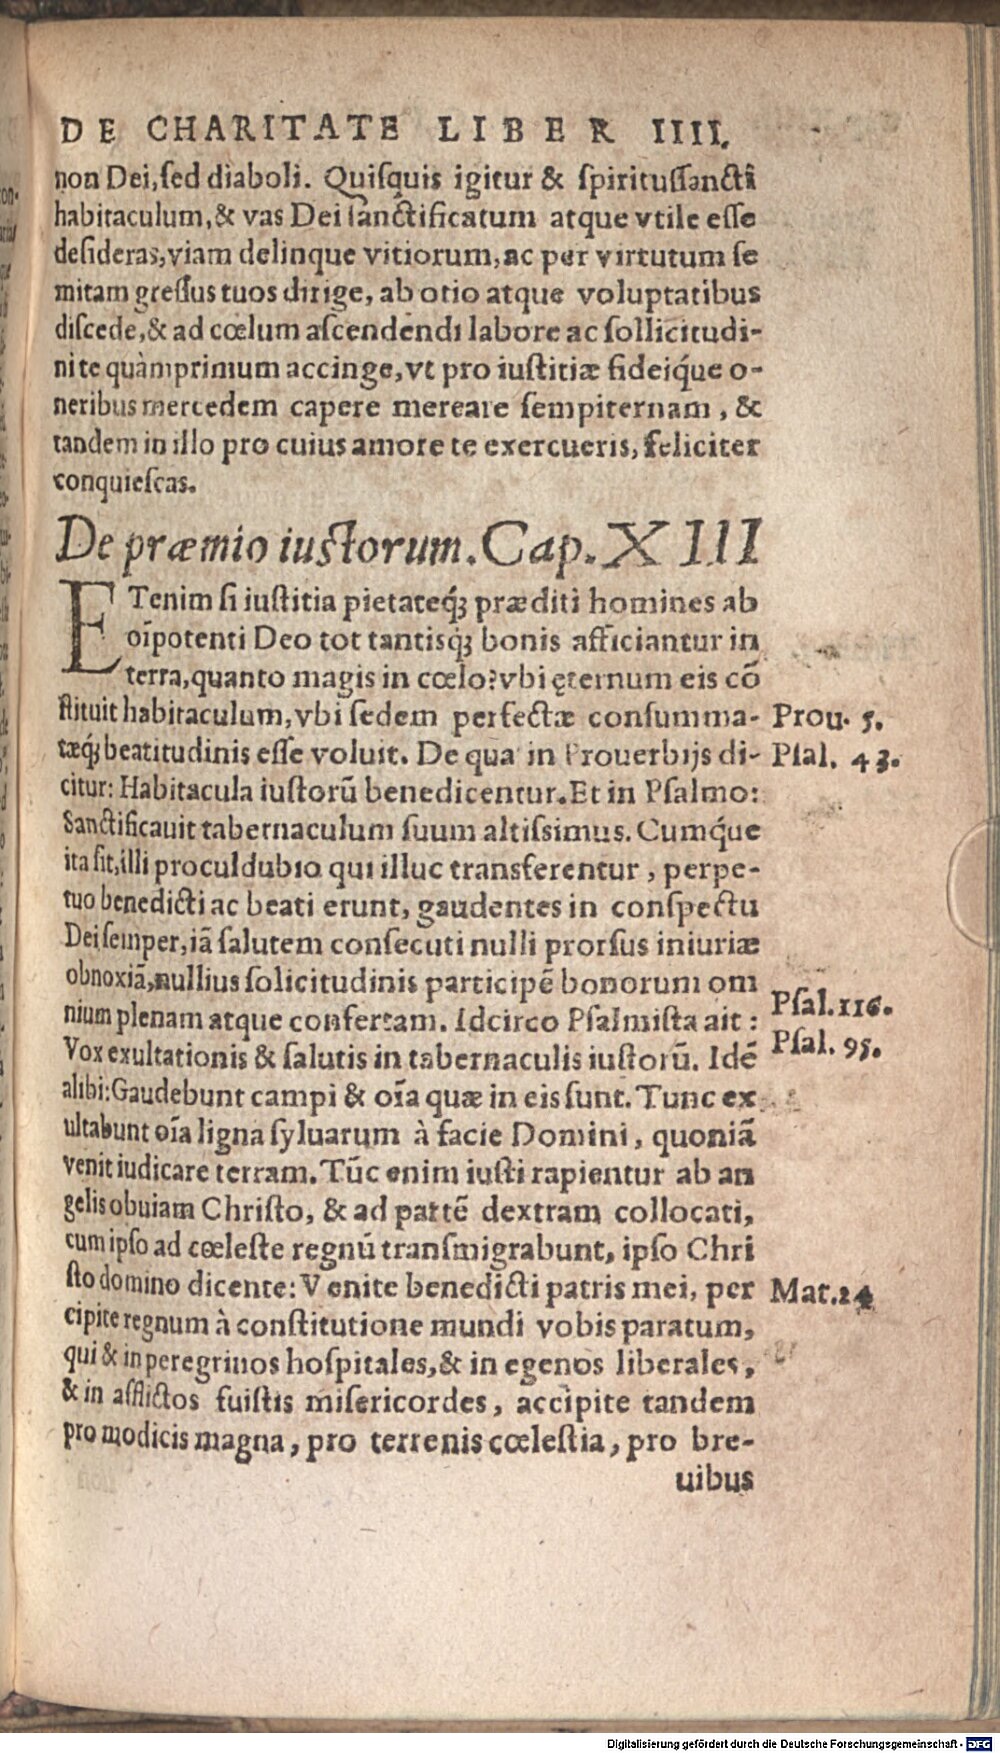 DE CHARITATE LIBER IIII.
non Dei, sed diaboli. Quisquis igitur & spiritussancti
habitaculum, & vas Dei sanctificatum atque vtile esse
desideras, viam delinque vitiorum, ac per virtutum se
mitam gressus tuos dirige, ab otio atque voluptatibus
discede, & ad cœlum ascendendi labore ac sollicitudi-
ni te quàmprimum accinge, vt pro iustitiæ fideiq́ue o-
neribus mercedem capere mereare sempiternam, &
tandem in illo pro cuius amore te exercueris, feliciter
conquiescas.
De præmio iustorum. Cap. XIII
ETenim si iustitia pietateq́; præditi homines ab
oīpotenti Deo tot tantisq́; bonis afficiantur in
terra, quanto magis in cœlo? vbi ęternum eis cō
stituit habitaculum, vbi sedem perfectæ consumma-
Prou. 5.
tæq́; beatitudinis esse voluit. De qua in Prouerbijs di-
Psal. 43.
citur: Habitacula iustorū benedicentur. Et in Psalmo:
Sanctificauit tabernaculum suum altissimus. Cumq́ue
ita sit, illi proculdubio qui illuc transferentur, perpe-
tuo benedicti ac beati erunt, gaudentes in conspectu
Dei semper, iā salutem consecuti nulli prorsus iniuriæ
obnoxiā, nullius solicitudinis participē bonorum om
nium plenam atque confertam. Idcirco Psalmista ait:
Psal. 116.
Vox exultationis & salutis in tabernaculis iustorū. Idē
Psal. 95.
alibi: Gaudebunt campi & oīa quæ in eis sunt. Tunc ex
ultabunt oīa ligna syluarum à facie Domini, quoniā
venit iudicare terram. Tūc enim iusti rapientur ab an
gelis obuiam Christo, & ad partē dextram collocati,
cum ipso ad cœleste regnū transmigrabunt, ipso Chri
sto domino dicente: Venite benedicti patris mei, per
Mat. 24
cipite regnum à constitutione mundi vobis paratum,
qui & in peregrinos hospitales, & in egenos liberales,
& in afflictos fuistis misericordes, accipite tandem
pro modicis magna, pro terrenis cœlestia, pro bre-
uibus
Digitalisierung gefördert durch die Deutsche Forschungsgemeinschaft - DFG